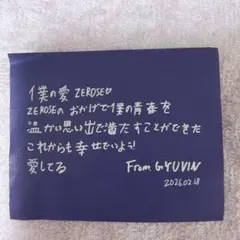 僕の愛 ZEROSE♡
ZEROSEの おかげで僕の青春を
温かい思い出で満たすことができた
これからも 幸せでいよう!
愛してる
From GYUVIN
2026.02.18